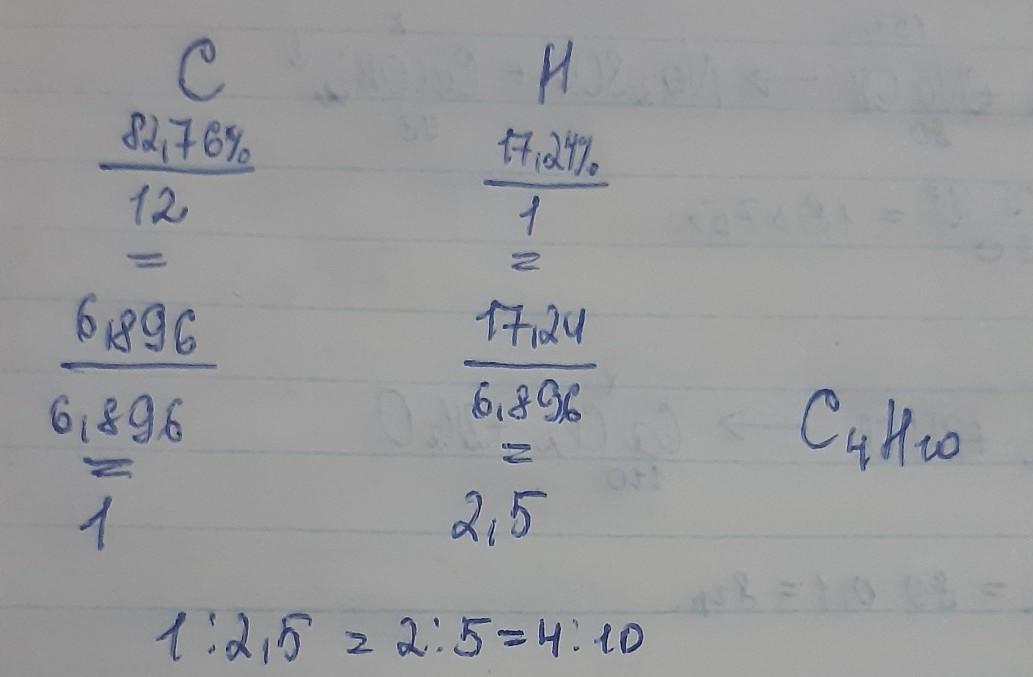 C H
82,76% 17,24%
12 1
= =
6,896 17,24
6,896 6,896
= =
1 2,5
C₄H₁₀
1:2,5 = 2:5 = 4:10